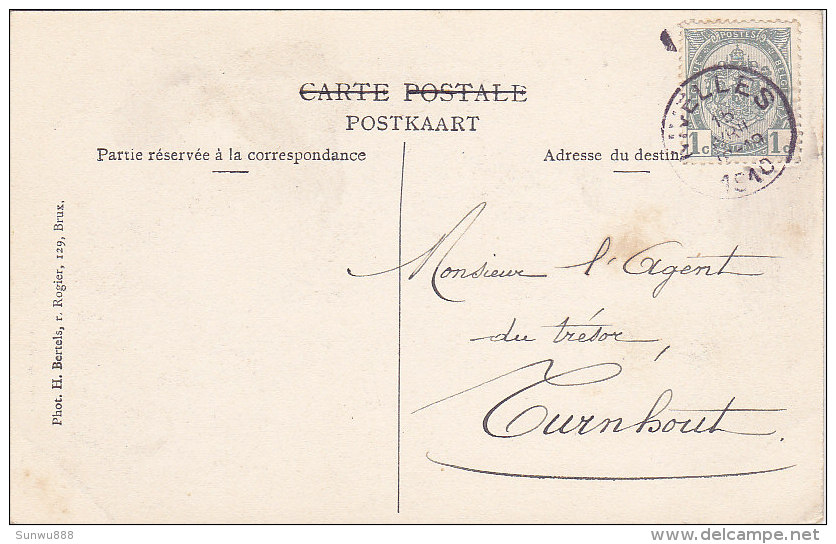 CARTE POSTALE
POSTKAART
Partie réservée à la correspondance
Adresse du destin
POSTES
1c 1c
NIVELLES
1910
Monsieur l'Agent
du trésor,
Turnhout.
Phot. H. Bertels, r. Rogier, 129, Brux.
Sunwu888
delcampe.net